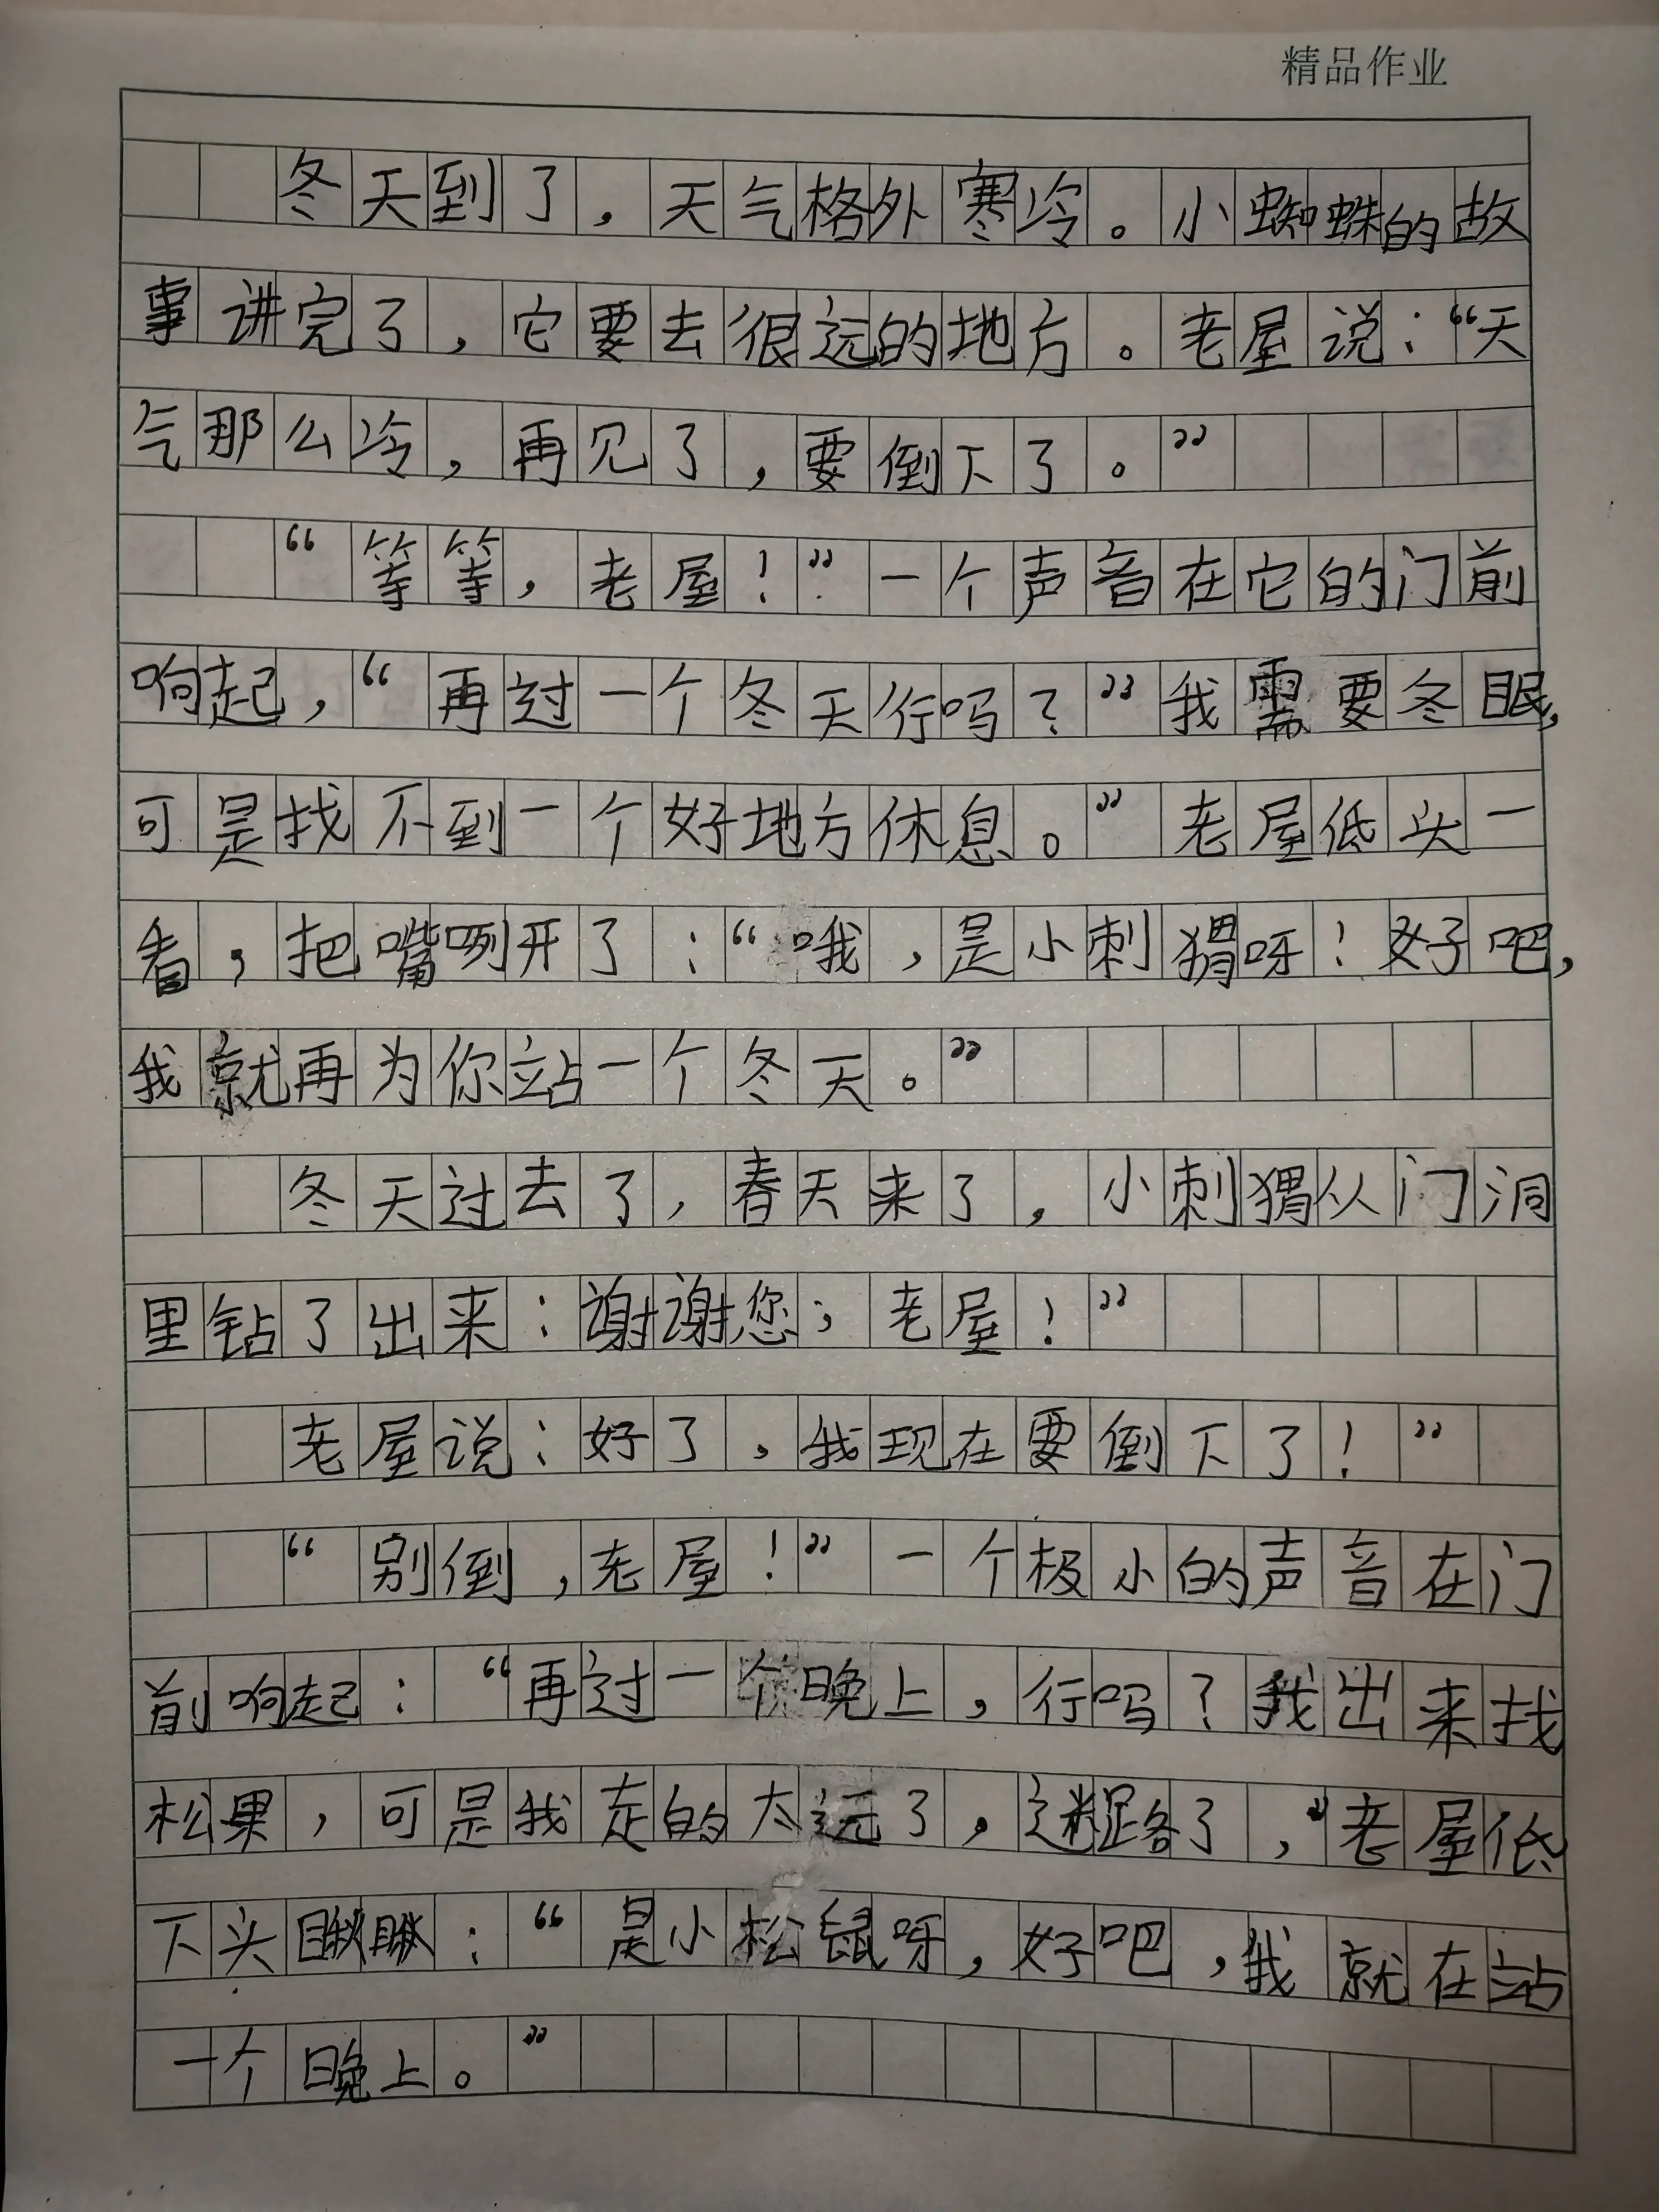 精品作业
冬天到了，天气格外寒冷。小蜘蛛的故
事讲完了，它要去很远的地方。老屋说：“天
气那么冷，再见了，要倒下了。”
“等等，老屋！”一个声音在它的门前
响起，“再过一个冬天行吗？”我需要冬眠，
可是找不到一个好地方休息。”老屋低头一
看，把嘴咧开了：“哦，是小刺猬呀！好吧，
我就再为你站一个冬天。”
冬天过去了，春天来了，小刺猬从门洞
里钻了出来：谢谢您；老屋！”
老屋说：好了，我现在要倒下了！”
“别倒，老屋！”一个极小的声音在门
前响起：“再过一个晚上，行吗？我出来找
松果，可是我走的太远了，迷路了，”老屋低
下头瞅瞅：“是小松鼠呀，好吧，我就在站
一个晚上。”